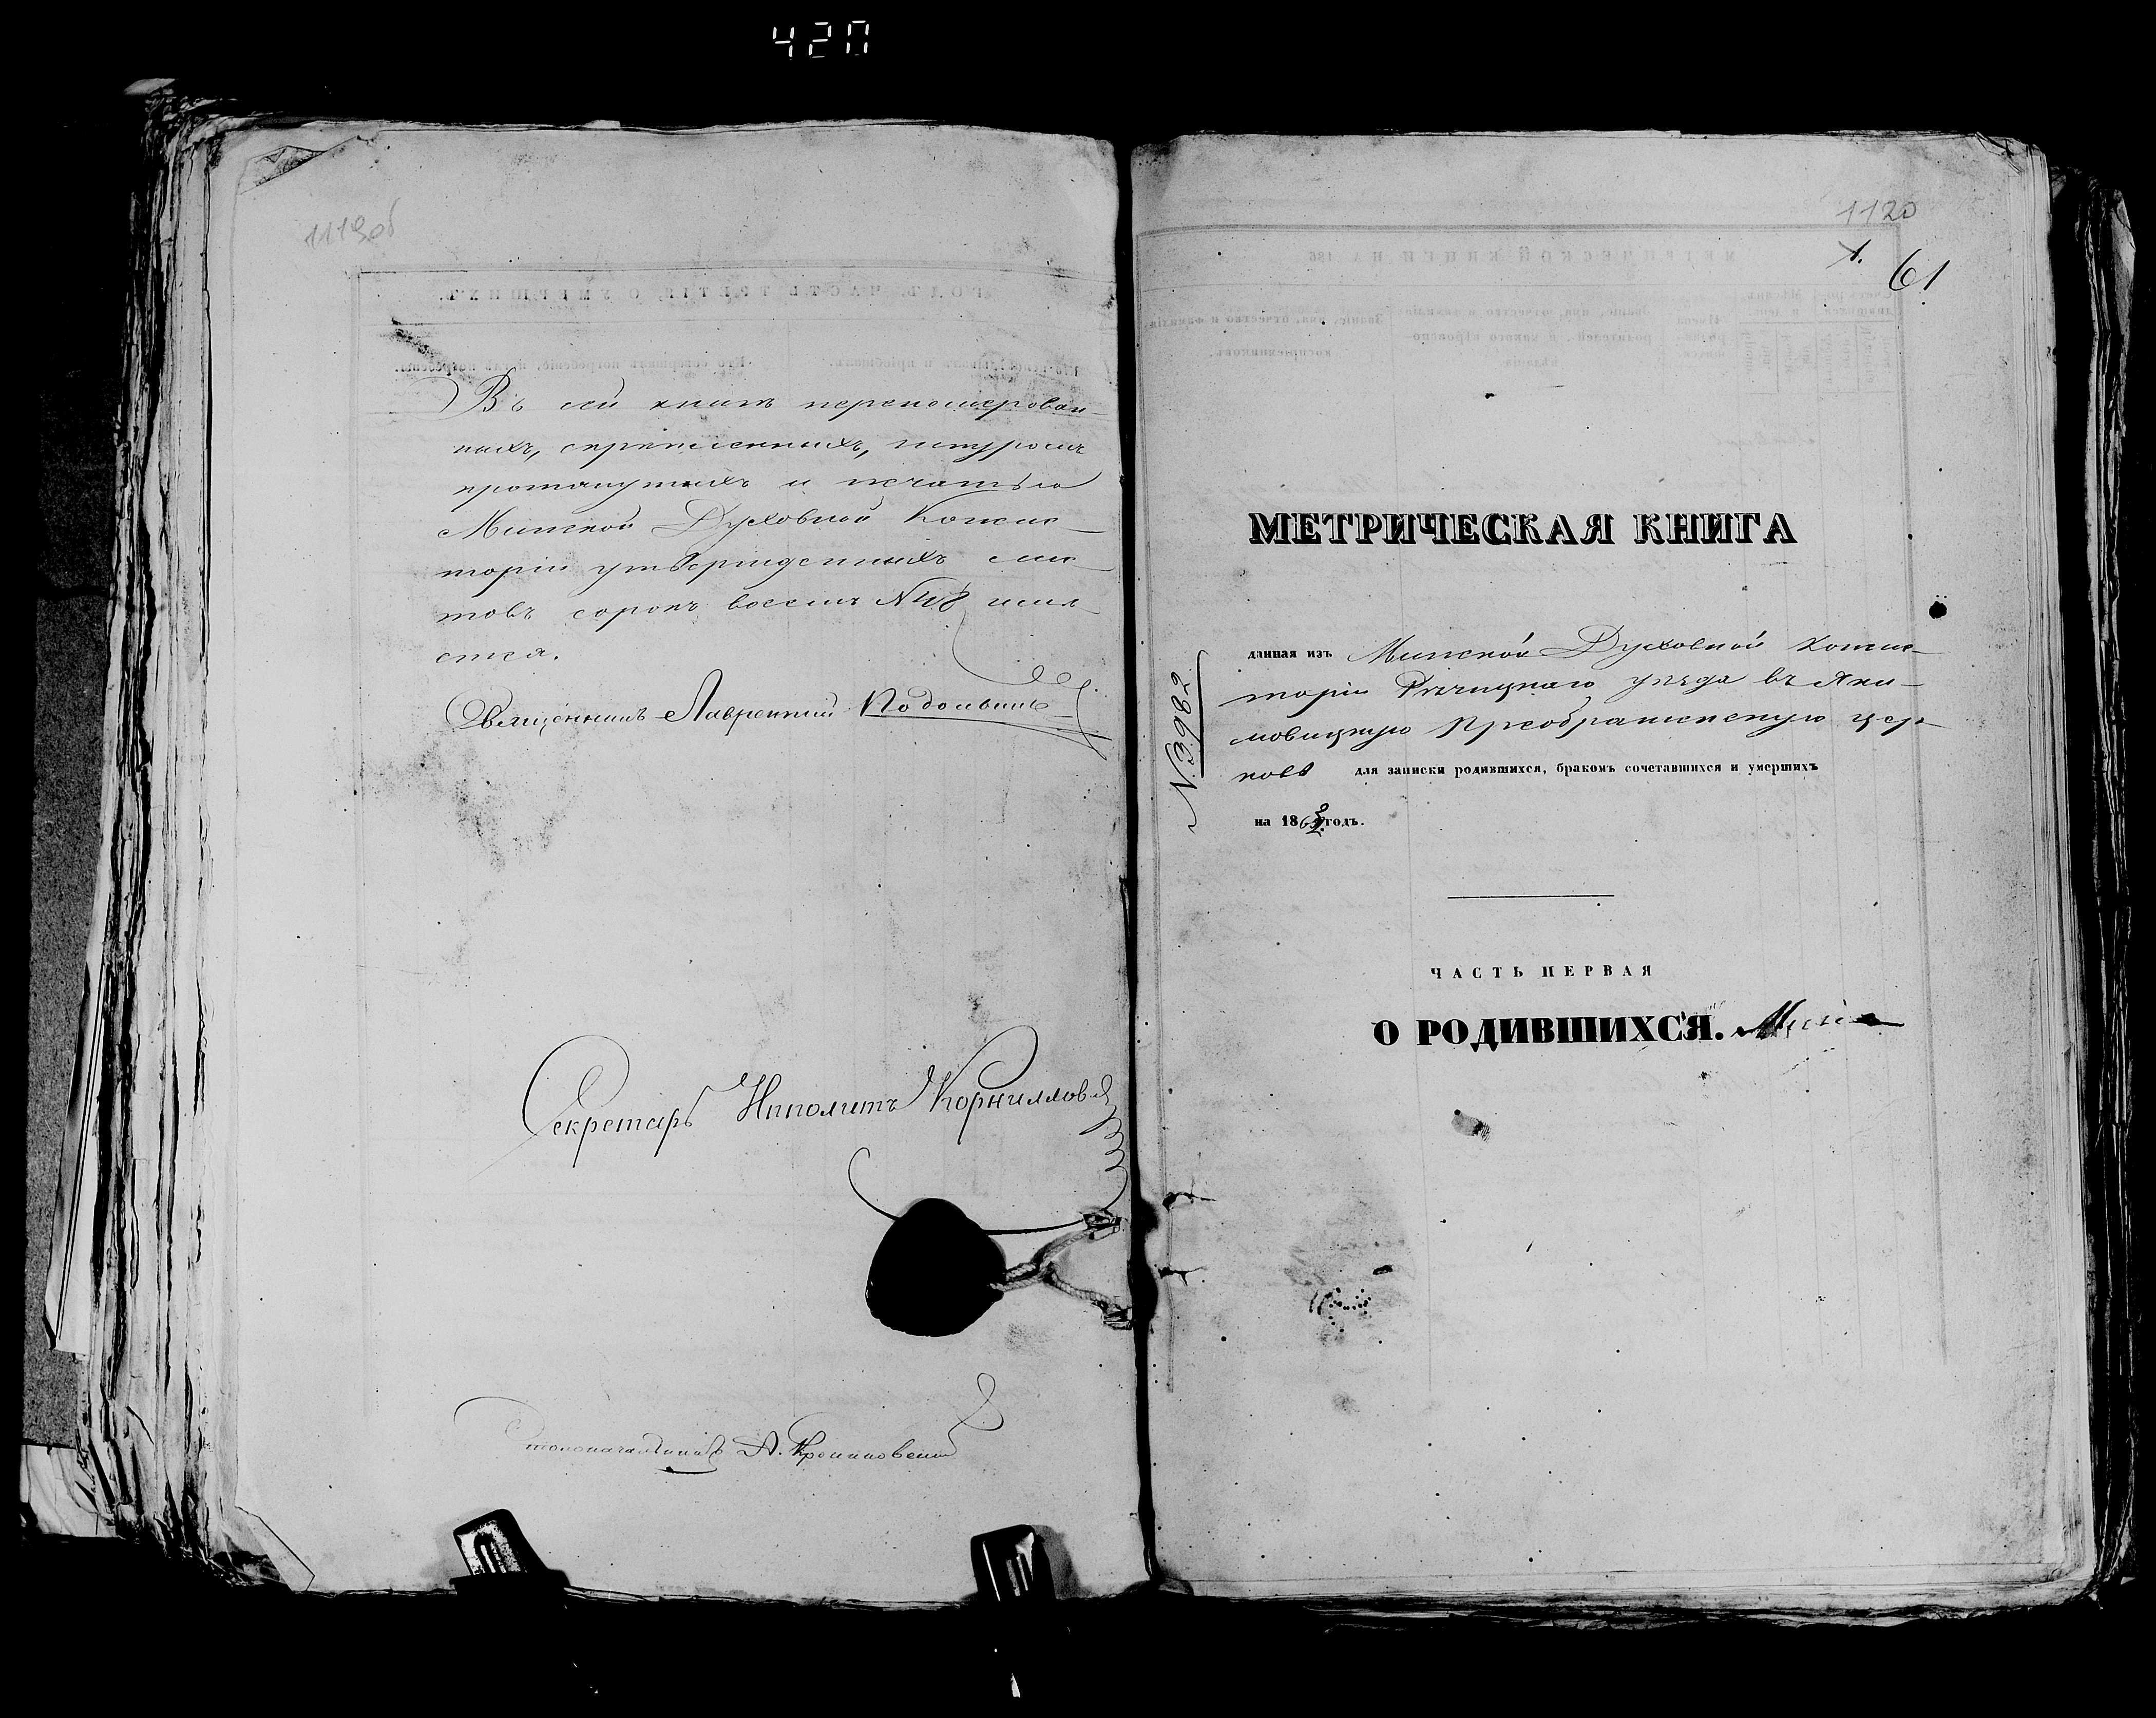 420
1119об
Въ сей книгѣ перенумерован-
ныхъ, скрѣпленныхъ, шнуромъ
протянутыхъ и печатью
Минской Духовной Консис-
торіи утвержденныхъ лис-
товъ сорокъ восемь №48 имѣ-
ется.
Священникъ Лаврентий
Секретарь Иполитъ Корнилловъ
Столоначальникъ А.
1120
1.
61
МЕТРИЧЕСКАЯ КНИГА
данная изъ Минской Духовной Консис-
торіи Рѣчицкаго уѣзда въ Яки-
мовицкую Преображенскую цер-
ковь для записки родившихся, бракомъ сочетавшихся и умершихъ
на 186 годъ.
№3982
ЧАСТЬ ПЕРВАЯ
О РОДИВШИХСЯ.